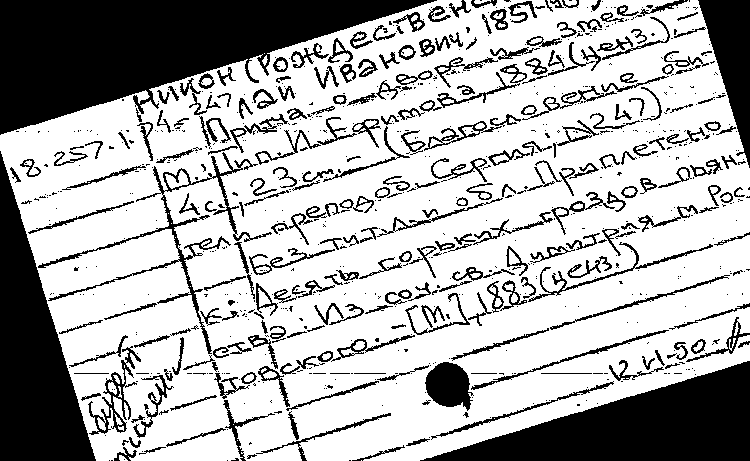 Никон (Рождественс
лай Иванович; 1851-19
18.257.1.74-247
Притча о дворе и о змее. –
М.: Тип. И. Ефимова, 1884 (ценз.). –
4 с.; 23 см. – (Благословение оби-
тели преподоб. Сергия; N247)
Без тит.л. и обл. Приплетено
к: Десять горьких гроздов пьян-
ства: Из соч. св. Димитрия м. Рос-
товского. – [М.], 1883 (ценз.)
будет
12-VI-90.